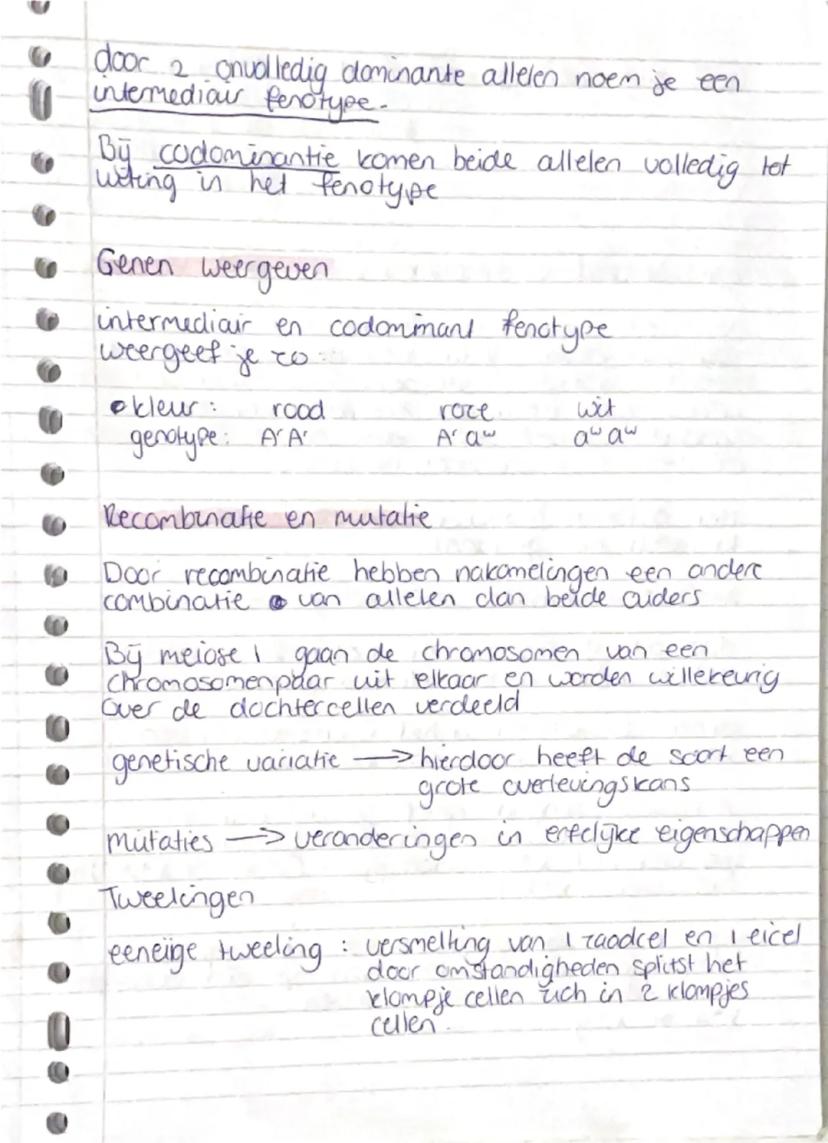 door 2 onvolledig dominante allelen noem je een
intermediair fenotype.
Bij codominantie komen beide allelen volledig tot
uiting in het fenotype
Genen weergeven
intermediair en codominant fenotype
weergeef je zo:
kleur: rood roze wit
genotype: AʳAʳ Aʳaʷ aʷaʷ
Recombinatie en mutatie
Door recombinatie hebben nakomelingen een andere
combinatie van allelen dan beide ouders
Bij meiose 1 gaan de chromosomen van een
chromosomenpaar uit elkaar en worden willekeurig
over de dochtercellen verdeeld
genetische variatie → hierdoor heeft de soort een
grote overlevingskans
mutaties → veranderingen in erfelijke eigenschappen
Tweelingen
eeneiige tweeling : versmelting van 1 zaadcel en 1 eicel
door omstandigheden splitst het
klompje cellen zich in 2 klompjes
cellen.